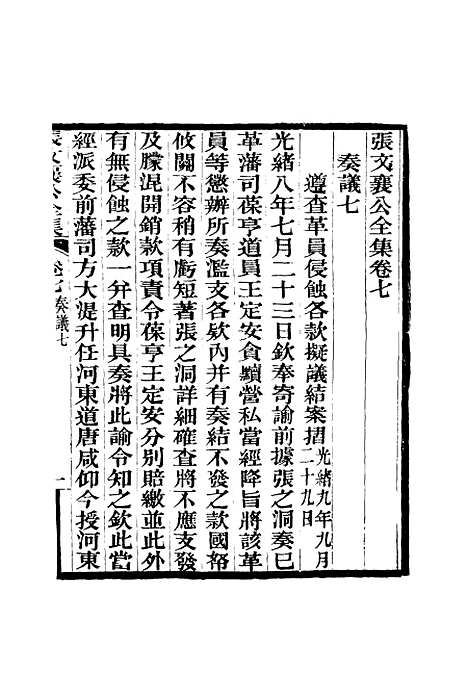 張文襄公全集卷七
奏議七
遵查革員侵蝕各款擬議結案摺光緒九年九月二十九日
光緒八年七月二十三日欽奉寄諭前據張之洞奏已
革藩司葆亨道員王定安貪黷營私當經降旨將該革
員等懲辦所奏濫支各欵內并有奏結不發之款國帑
攸關不容稍有虧短著張之洞詳細確查將不應支發
及朦混開銷款項責令葆亨王定安分別賠繳並此外
有無侵蝕之款一并查明具奏將此諭令知之欽此當
經派委前藩司方大湜升任河東道唐咸仰今授河東
張文襄公全集 卷七奏議七 一